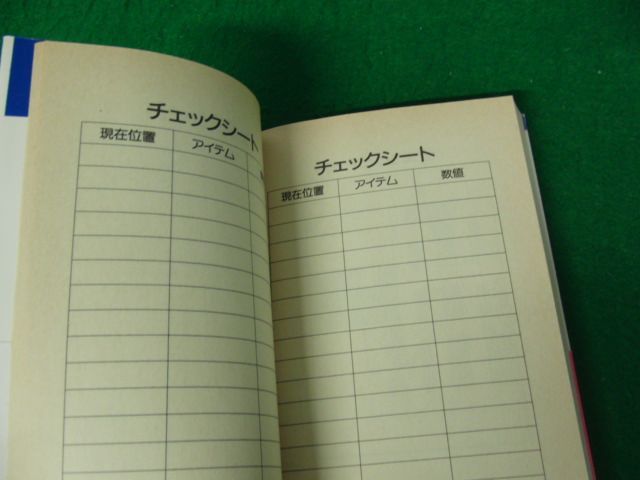 チェックシート
現在位置 アイテム
チェックシート
現在位置 アイテム 数値